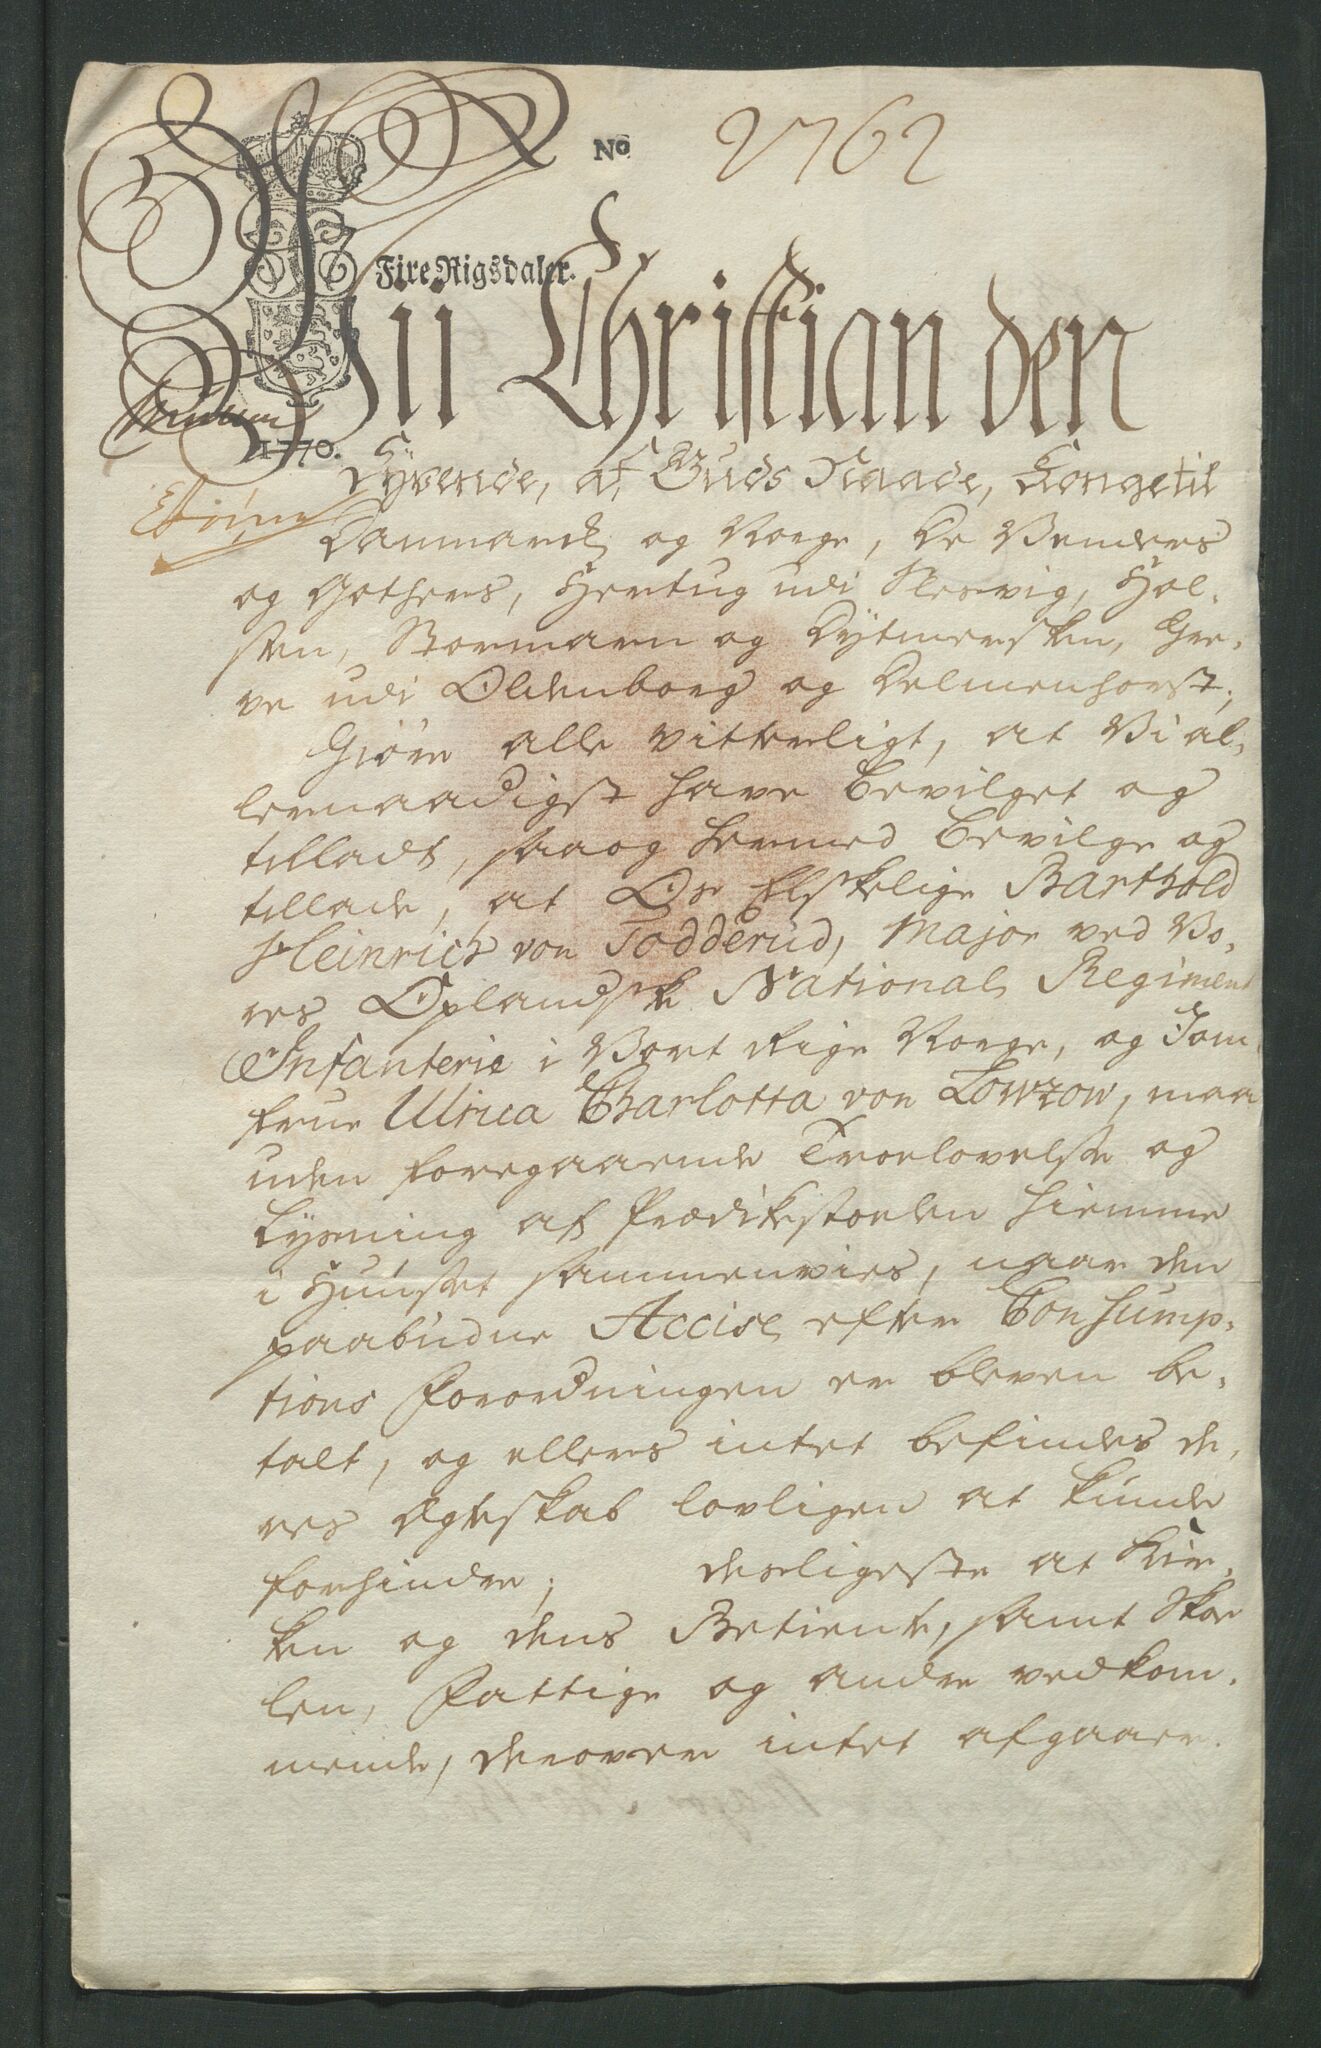 No 2762
Fire Rigsdaler.
Vii Christian den
1770.
Syvende, af Guds Naade, Konge til
Danmarck og Norge, de Venders
og Gothers, Hertug udi Slesvig, Hol-
sten, Stormarn og Dytmersken, Gre-
ve udi Oldenborg og Delmenhorst,
Giøre alle vitterligt, at Vi al-
lernaadigst have bevilget og
tilladt, saa og hermed bevilge og
tillade, at Os Elskelige Barthold
Heinrich von Todderud, Major ved Vo-
res Oplandske National Regiment
Infanterie i Vort Rige Norge, og Jom-
frue Ulrica Charlotta von Lowzow, maa
uden foregaaende Troelovelse og
Lysning af Prædikestoelen hiemme
i Huuset sammenvies, naar den
paabudne Accise efter Consump-
tions Forordningen er bleven be-
talt, og ellers intet befindes de-
res Ægteskab lovligen at kunde
forhindre; desligeste at Kir-
ken og dens Betiente, samt Skoe
len, Fattige og andre vedkom-
mende, derover intet afgaaer.